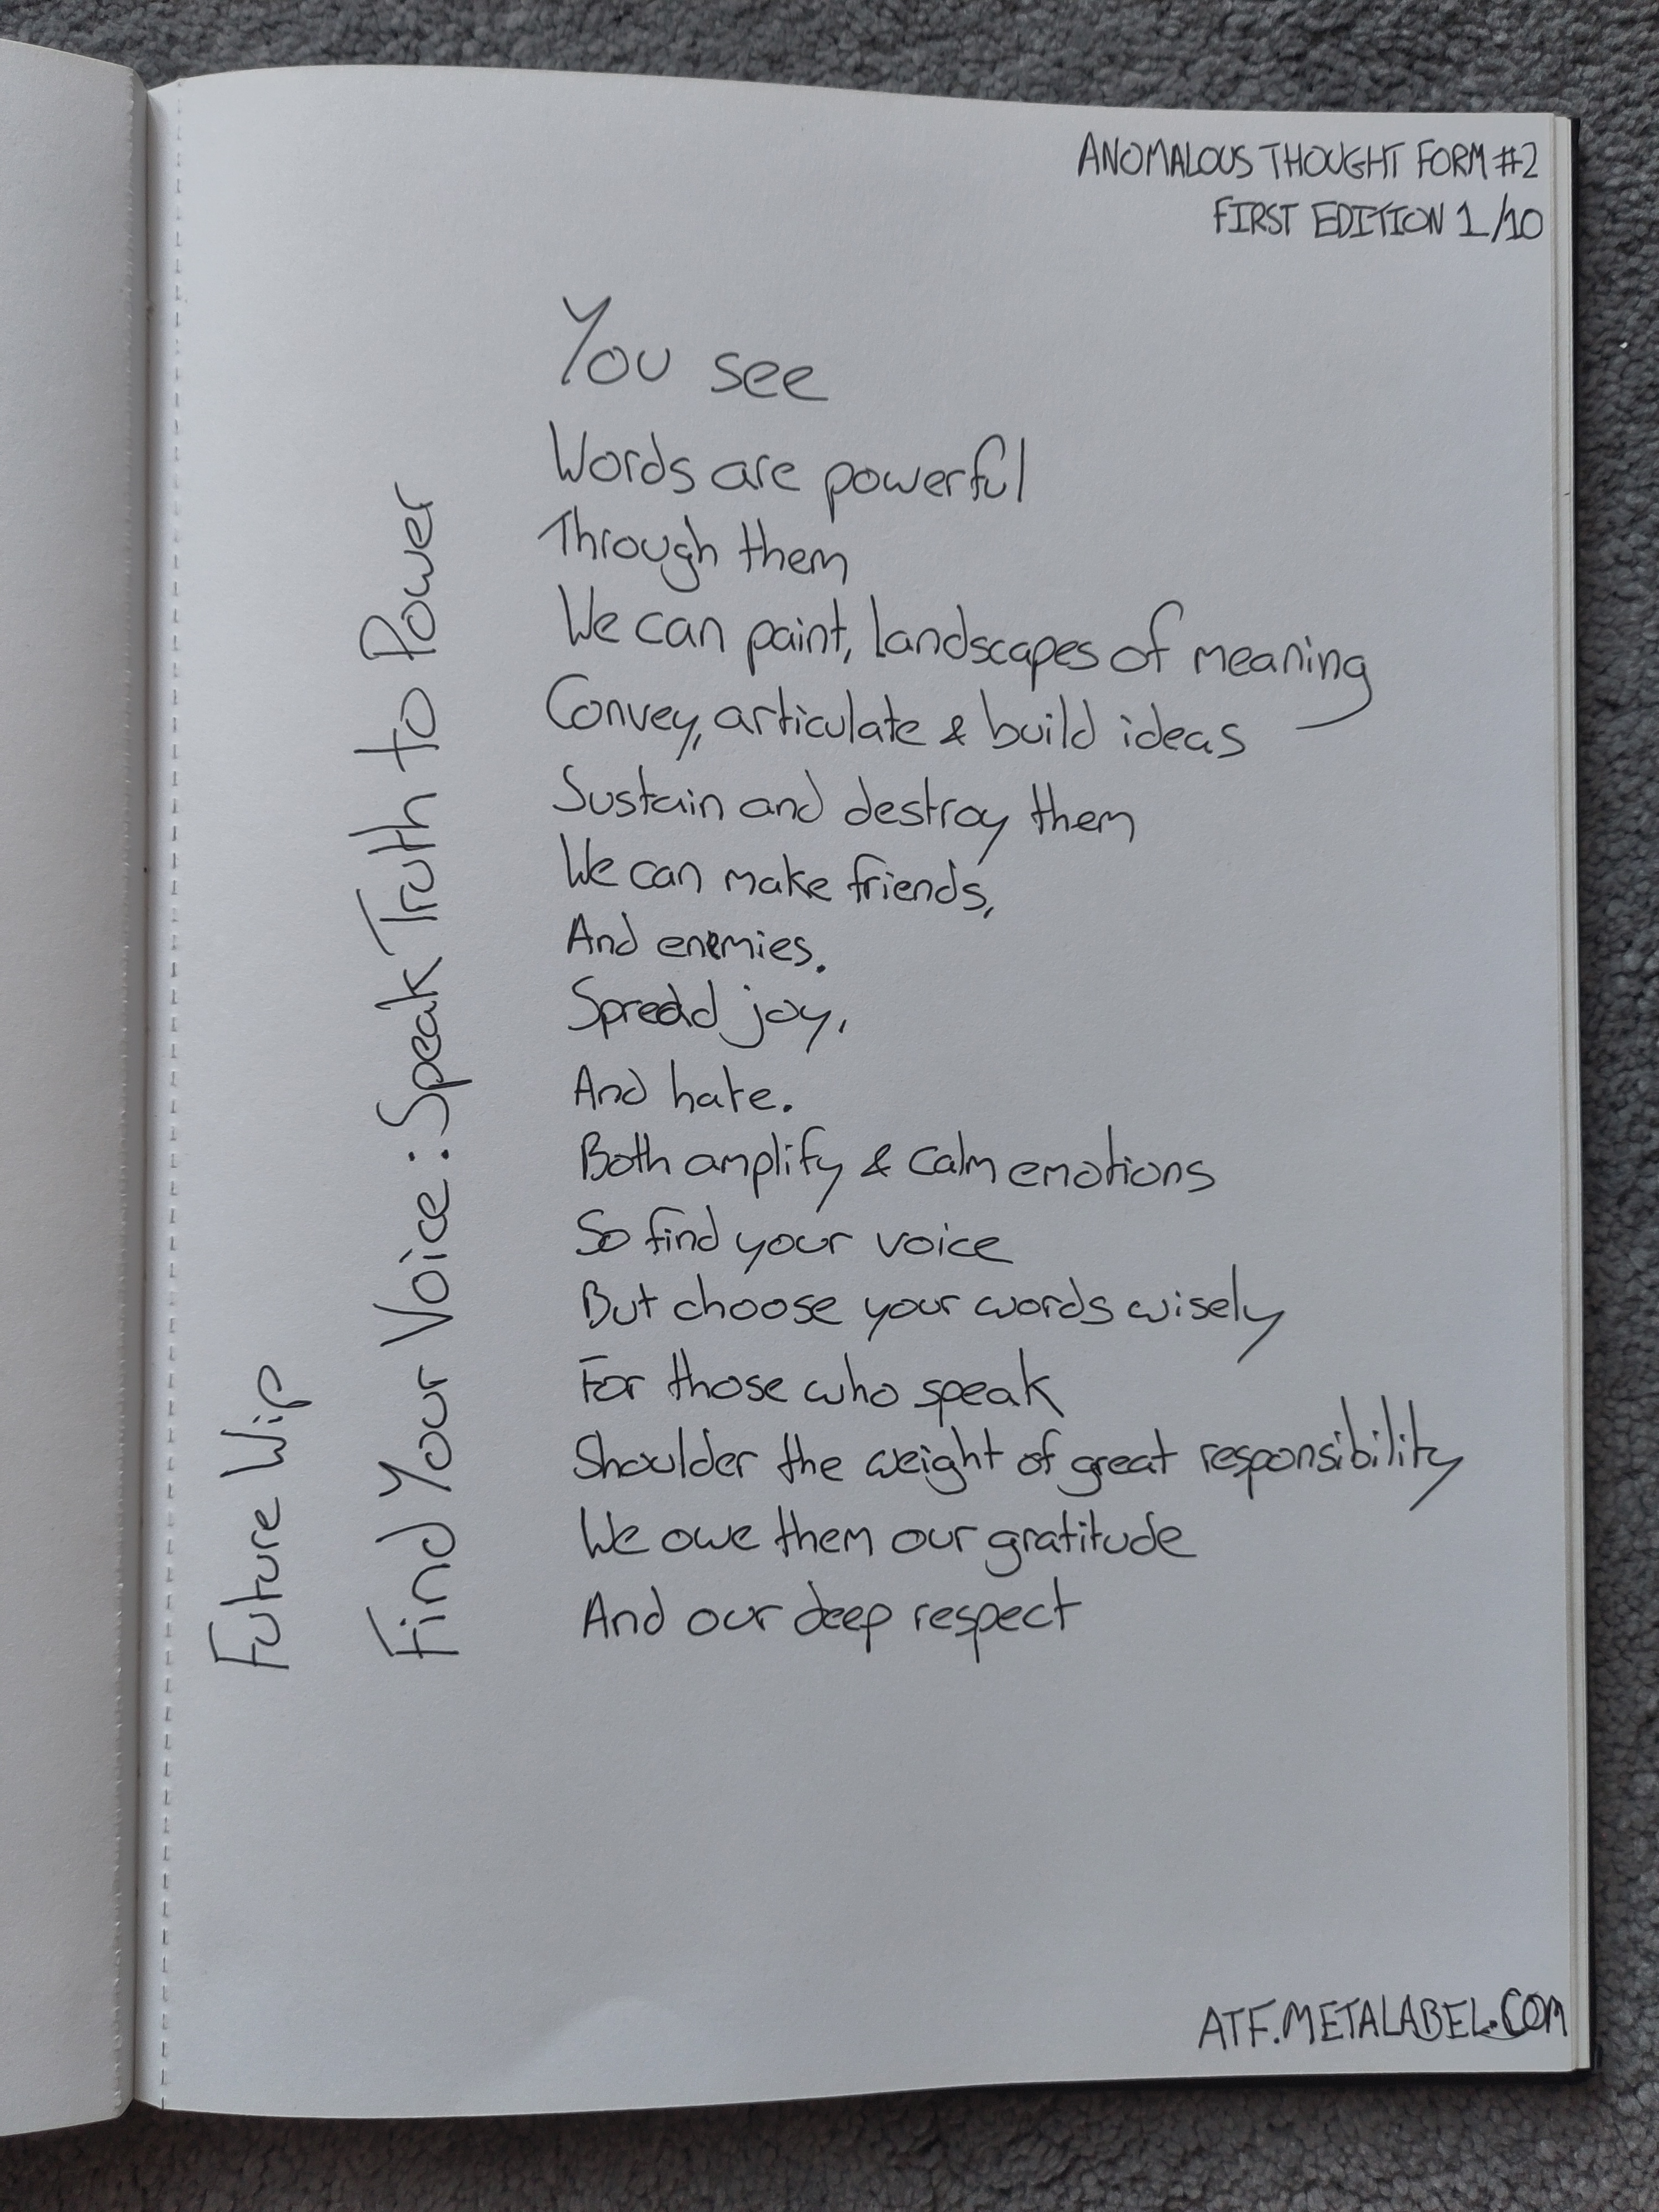 ANOMALOUS THOUGHT FORM #2
FIRST EDITION 1/10
Future Wip
Find Your Voice: Speak Truth to Power
You see
Words are powerful
Through them
We can paint, landscapes of meaning
Convey, articulate & build ideas
Sustain and destroy them
We can make friends,
And enemies.
Spread joy,
And hate.
Both amplify & calm emotions
So find your voice
But choose your words wisely
For those who speak
Shoulder the weight of great responsibility
We owe them our gratitude
And our deep respect
ATF.METALABEL.COM